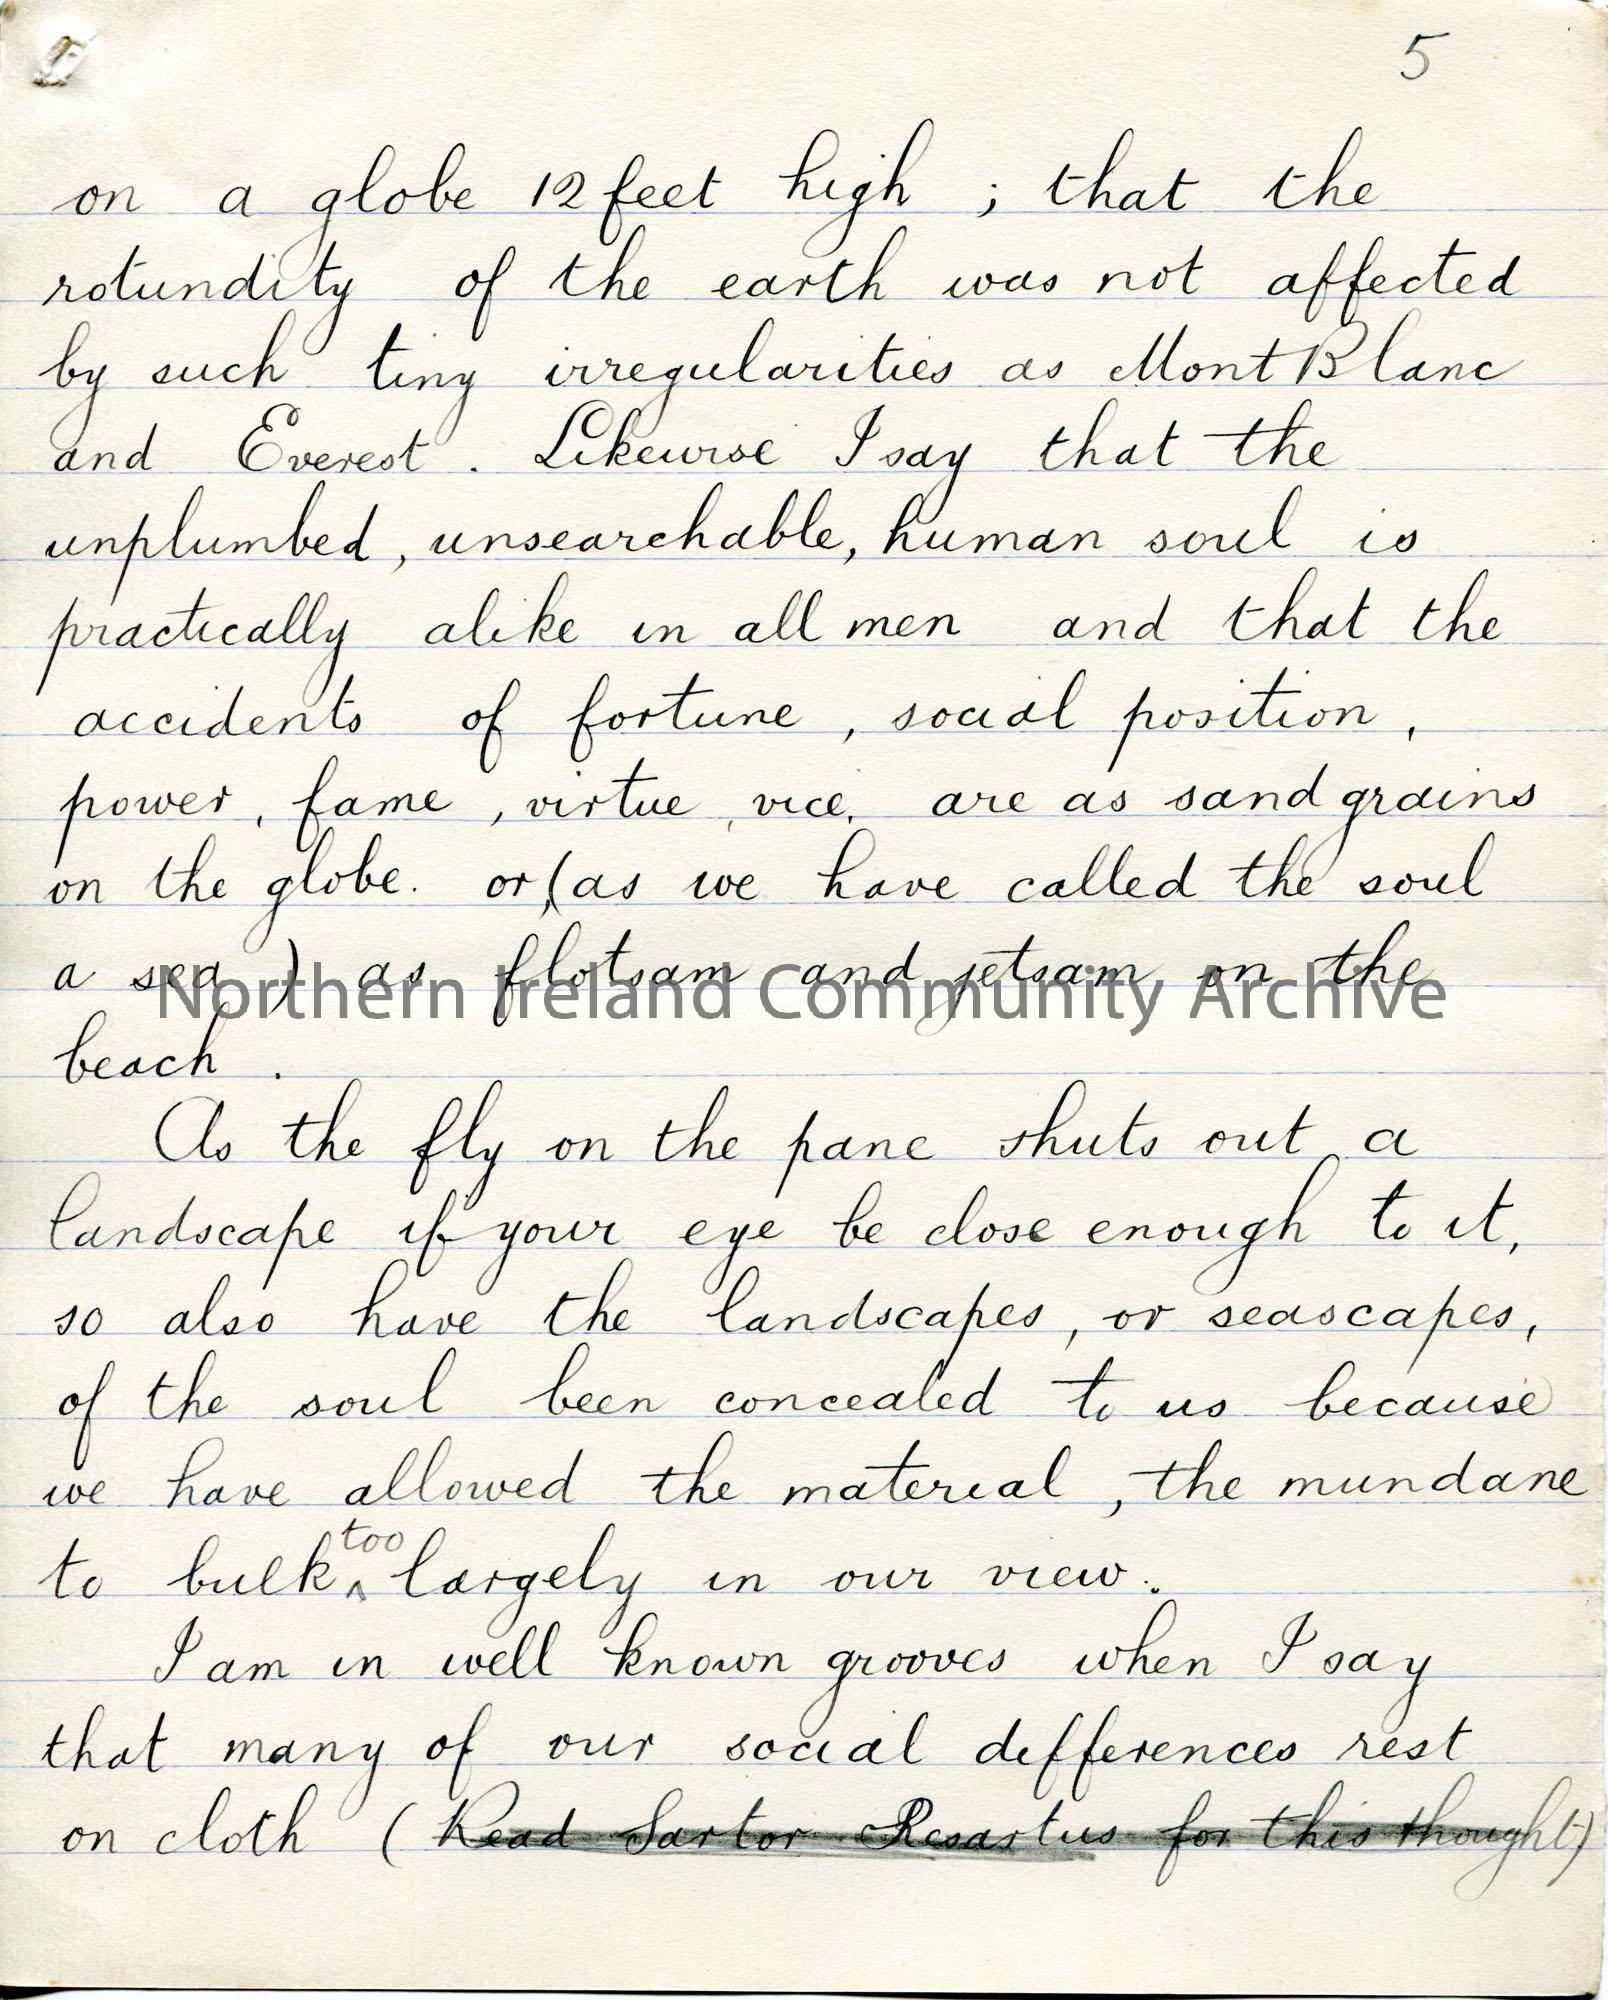 5
on a globe 12 feet high ; that the
rotundity of the earth was not affected
by such tiny irregularities as Mont Blanc
and Everest. Likewise I say that the
unplumbed, unsearchable, human soul is
practically alike in all men and that the
accidents of fortune, social position,
power, fame, virtue, vice, are as sand grains
on the globe. or, (as we have called the soul
a sea) as flotsam and jetsam on the
Northern Ireland Community Archive
beach.
As the fly on the pane shuts out a
landscape if your eye be close enough to it,
so also have the landscapes, or seascapes,
of the soul been concealed to us because
we have allowed the material, the mundane
too
to bulk ^ largely in our view.
I am in well known grooves when I say
that many of our social differences rest
on cloth (Read Sartor Resartus for this thought)